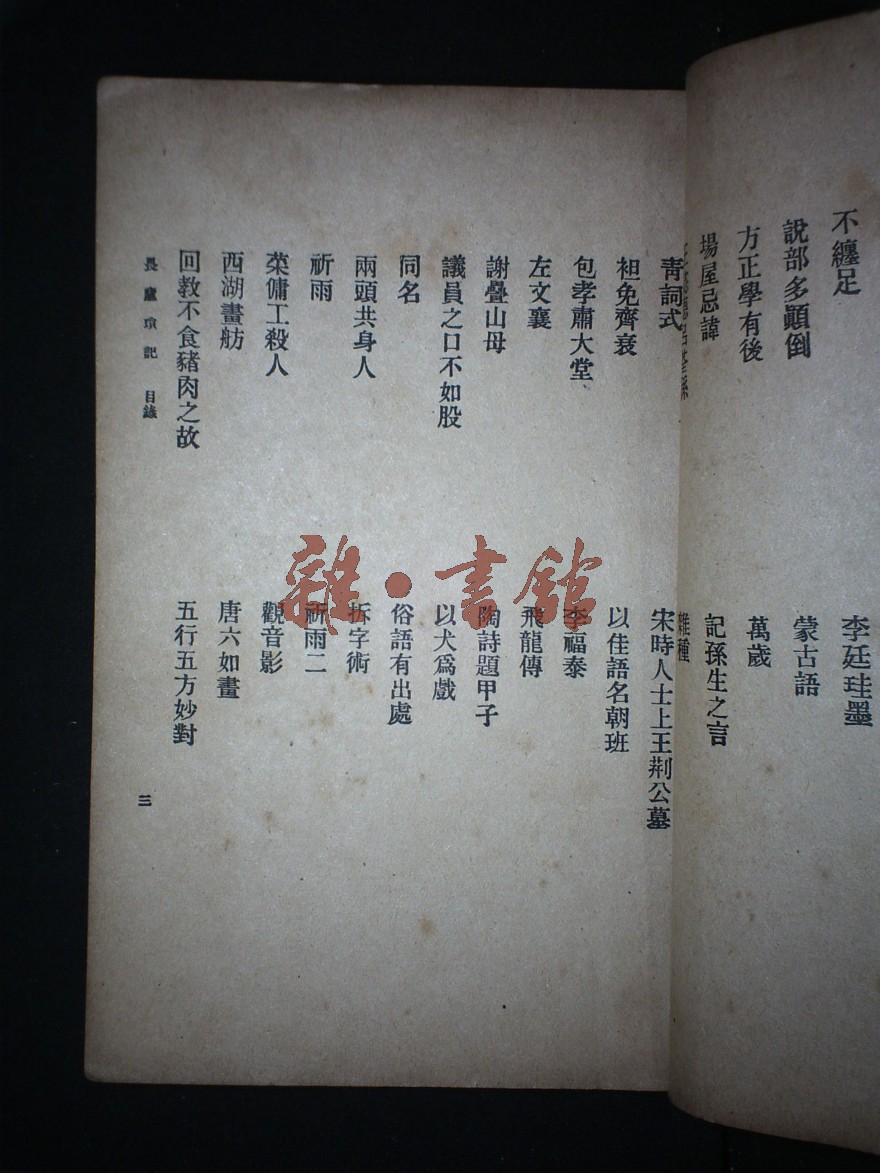 不纏足
李廷珪墨
說部多顚倒
蒙古語
方正學有後
萬歲
場屋忌諱
記孫生之言
雜種
靑詞式
宋時人士上王荆公墓
袒免齊衰
以佳語名朝班
包孝肅大堂
李福泰
左文襄
飛龍傳
謝疊山母
陶詩題甲子
議員之口不如股
以犬爲戲
同名
俗語有出處
兩頭共身人
拆字術
祈雨
祈雨二
菜傭工殺人
觀音影
西湖畫舫
唐六如畫
回敎不食豬肉之故
五行五方妙對
目錄
三
雜·書館